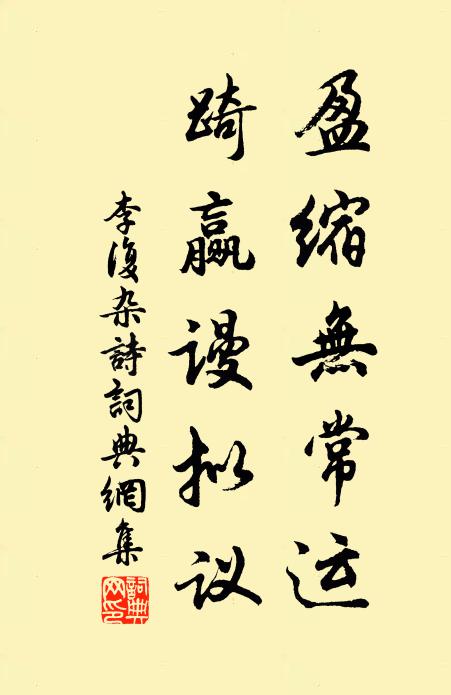 盈缩無常运
踦赢谩拟议
李復杂詩詞典網集
詞典网印